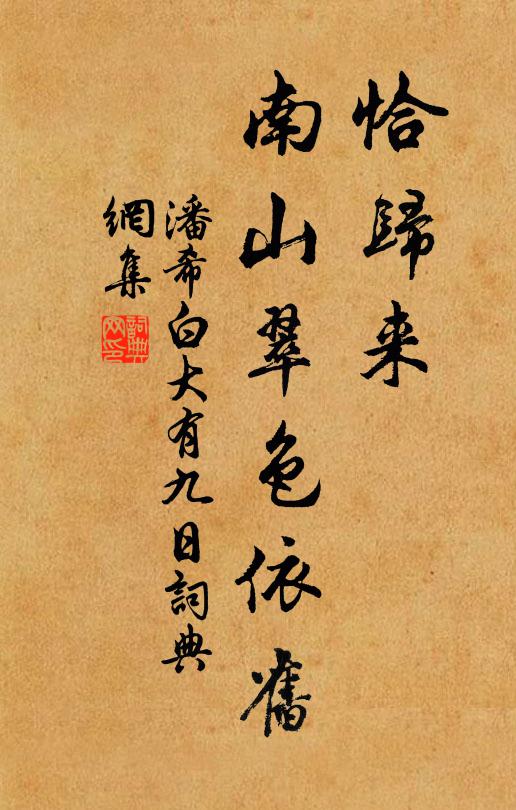 恰歸来
南山翠色依舊
潘希白大有九日詞典
網集
詞典網印